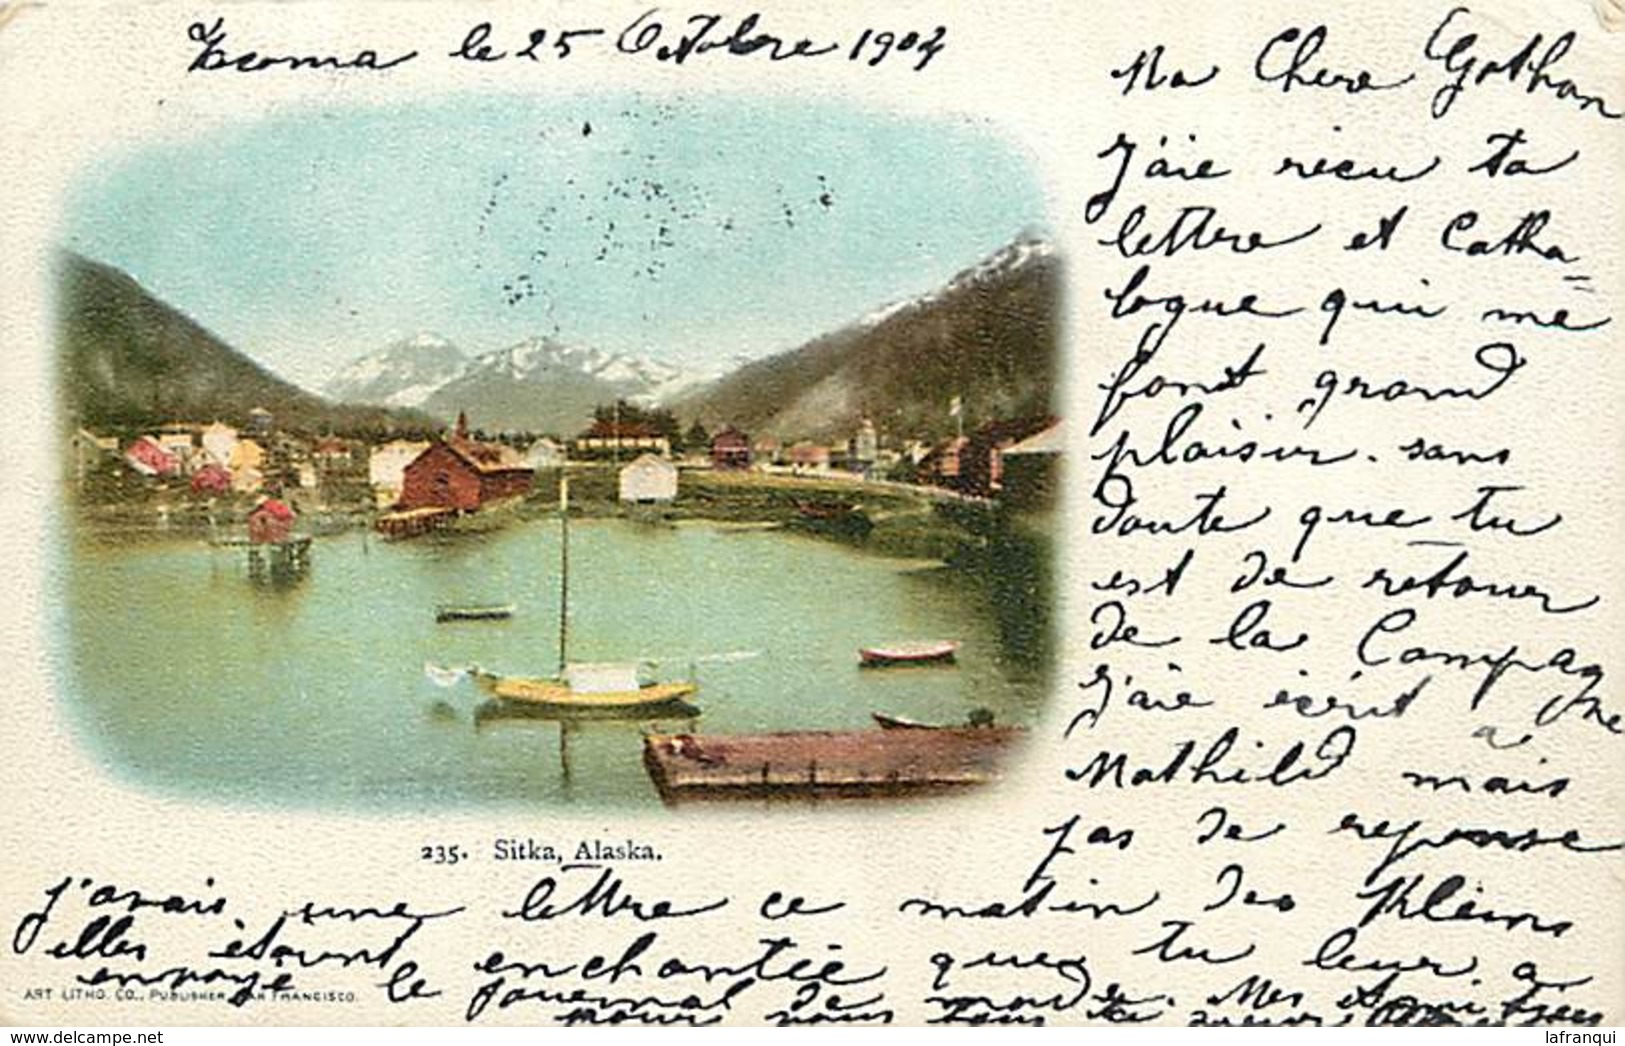 le 25 Octobre 1904
Ma Chere
J'aie recu ta
lettre et Catha=
logue qui me
font grand
plaisir. sans
doute que tu
est de retour
de la Compagne
J'aie ecrit a
Mathild mais
pas de reponse
235. Sitka, Alaska.
j'avais une lettre ce matin des Kleins
elles étaient enchantée que tu leur a
envoyé le journal de mode. Mes
ART LITHO. CO., PUBLISHER, SAN FRANCISCO.
pour vous tous
delcampe.net
lafranqui